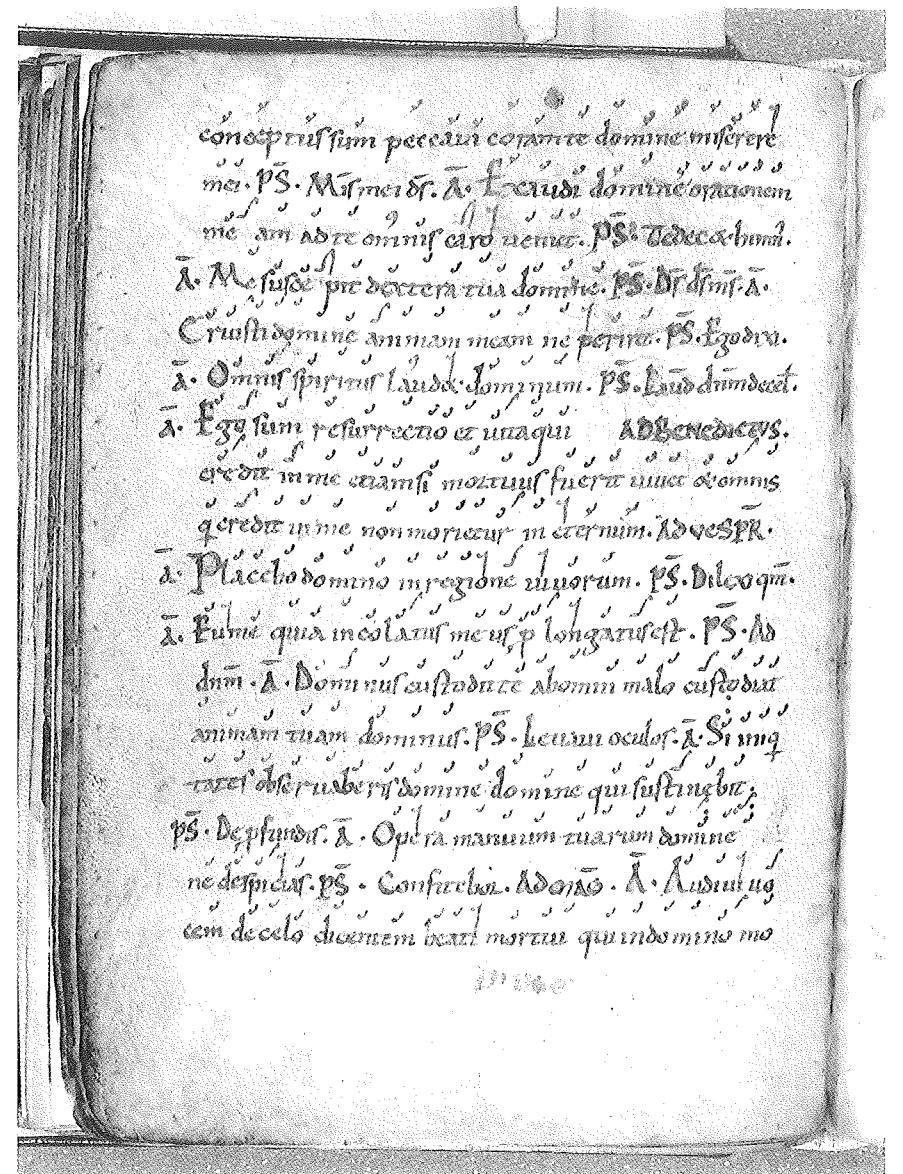 conceptus sum peccavi coram te domine miserere
mei · P̄S · M̄is mei d̄s · Ā · Exaudi domine orationem
me am ad te omnis caro veniet · P̄S · Te dec& hȳmn̄ ·
Ā · Me susce pit dextera tua domine · P̄S · D̄s d̄s m̄s · Ā ·
Eruisti domine animam meam ne periret · P̄S · Ego dixi ·
Ā · Omnis spiritus laud& dominum · P̄S · Laud dn̄m de cel̄ ·
Ā · Ego sum resurrectio et vita qui AD BENEDICTUS ·
credit in me etiam si mortuus fuerit vivet & omnis
q̇ credit in me non morietur in eternum · AD VESPR̄ ·
Ā · Placebo domino in regione vivorum · P̄S · Dilexi qm̄ ·
Ā · Eu me quia incolatus me us p̱ longatus est · P̄S · Ad
dn̄m · Ā · Dominus custodit te ab omni malo custodiat
animam tuam dominus · P̄S · Levavi oculos · Ā · Si iniq̇
tates observaberis domine domine qui sustinebit ;
P̄S · De p̱fundis · Ā · Opera manuum tuarum domine
ne despicias · P̄S · Confitebor · AD Or̄AO · Ā · Audivi vo
cem de celo dicentem beati mortui qui in domino mo